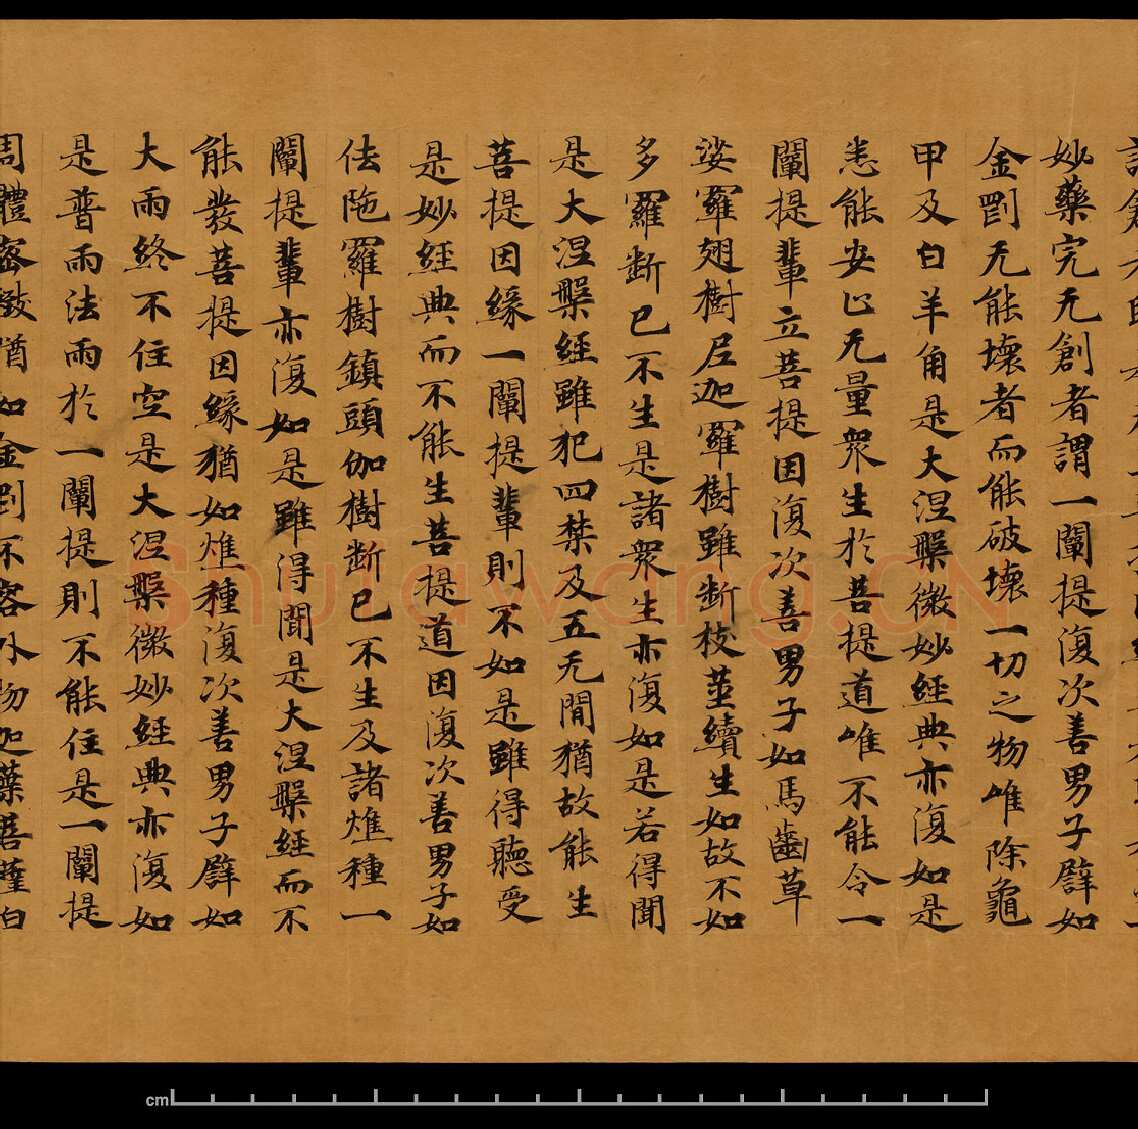 妙藥完无創者謂一闡提復次善男子譬如
金剛无能壞者而能破壞一切之物唯除龜
甲及白羊角是大涅槃微妙經典亦復如是
悉能安止无量衆生於菩提道唯不能令一
闡提輩立菩提因復次善男子如馬齒草
娑羅翅樹尼迦羅樹雖斷枝莖續生如故不如
多羅斷已不生是諸衆生亦復如是若得聞
是大涅槃經雖犯四禁及五无間猶故能生
菩提因緣一闡提輩則不如是雖得聽受
是妙經典而不能生菩提道因復次善男子如
佉陁羅樹鎮頭伽樹斷已不生及諸燋種一
闡提輩亦復如是雖得聞是大涅槃經而不
能發菩提因緣猶如燋種復次善男子譬如
大雨終不住空是大涅槃微妙經典亦復如
是普雨法雨於一闡提則不能住是一闡提
周體密緻猶如金剛不容外物迦葉菩薩白
Shufawang.CN
cm